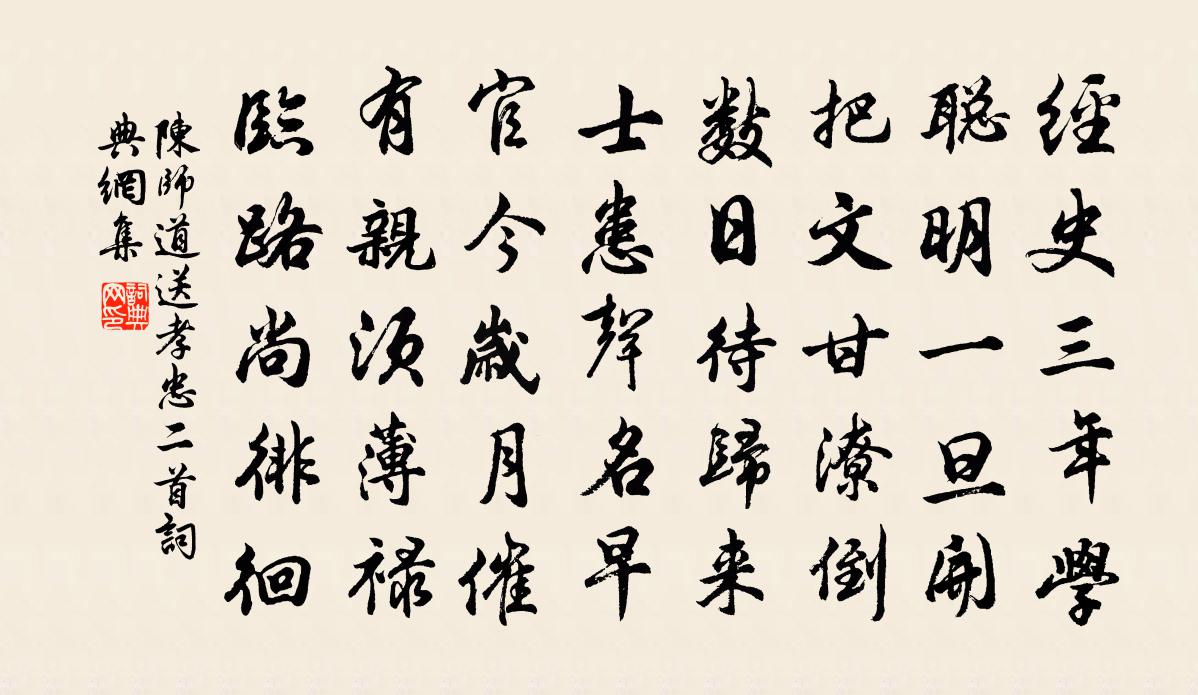 經史三年學
聡明一旦開
把文甘潦倒
數日待歸来
士患聲名早
官今歲月催
有親須薄禄
臨路尚徘徊
陳師道送孝忠二首詞
典網集
詞典
网印